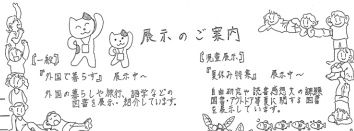 展示のご案内
【一般】
『外国で暮らす』 展示中〜
外国の暮らしや旅行、語学などの
図書を展示・紹介しています。
【児童展示】
『夏休み特集』 展示中〜
自由研究や読書感想文の課題
図書・アウトドア等夏に関する図書
を展示しています。